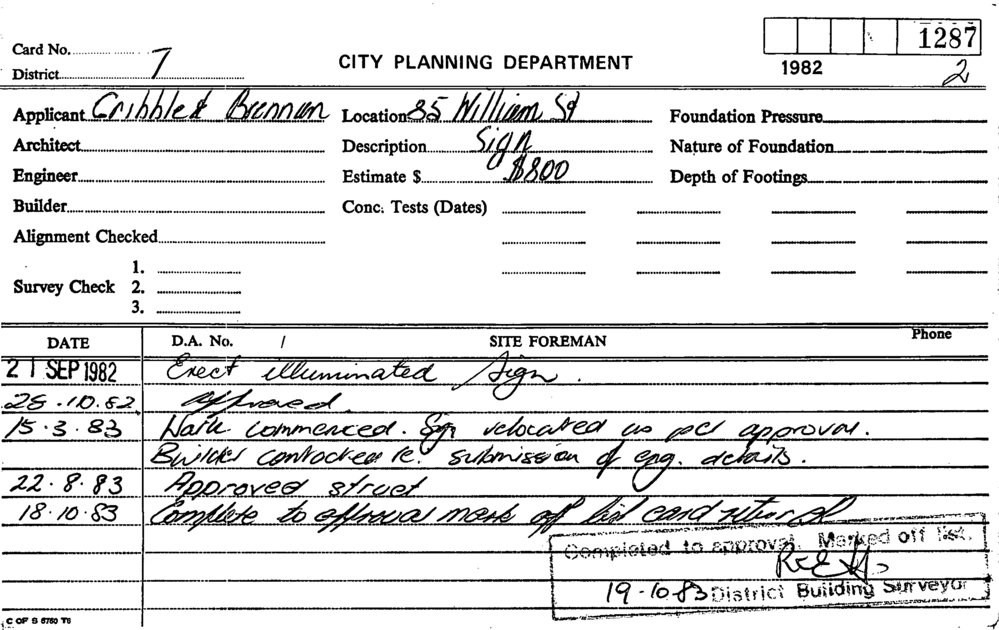 Card No.
District 7
CITY PLANNING DEPARTMENT
1287
1982
2
Applicant Gribble & Brennan Location 85 William St Foundation Pressure
Architect Description Sign Nature of Foundation
Engineer Estimate $ $800 Depth of Footings
Builder Conc. Tests (Dates)
Alignment Checked
1.
Survey Check 2.
3.
DATE D.A. No. / SITE FOREMAN Phone
21 SEP 1982 Erect illuminated Sign.
28.10.82 approved.
15.3.83 commenced. Sgn relocated as per approval.
Builder contacted re. submission of eng. details.
22.8.83 Approved struct
18.10.83 Complete to approval mark off list card
Completed to approval. Marked off list.
19-10-83 District Building Surveyor
C OF S 6760 T6